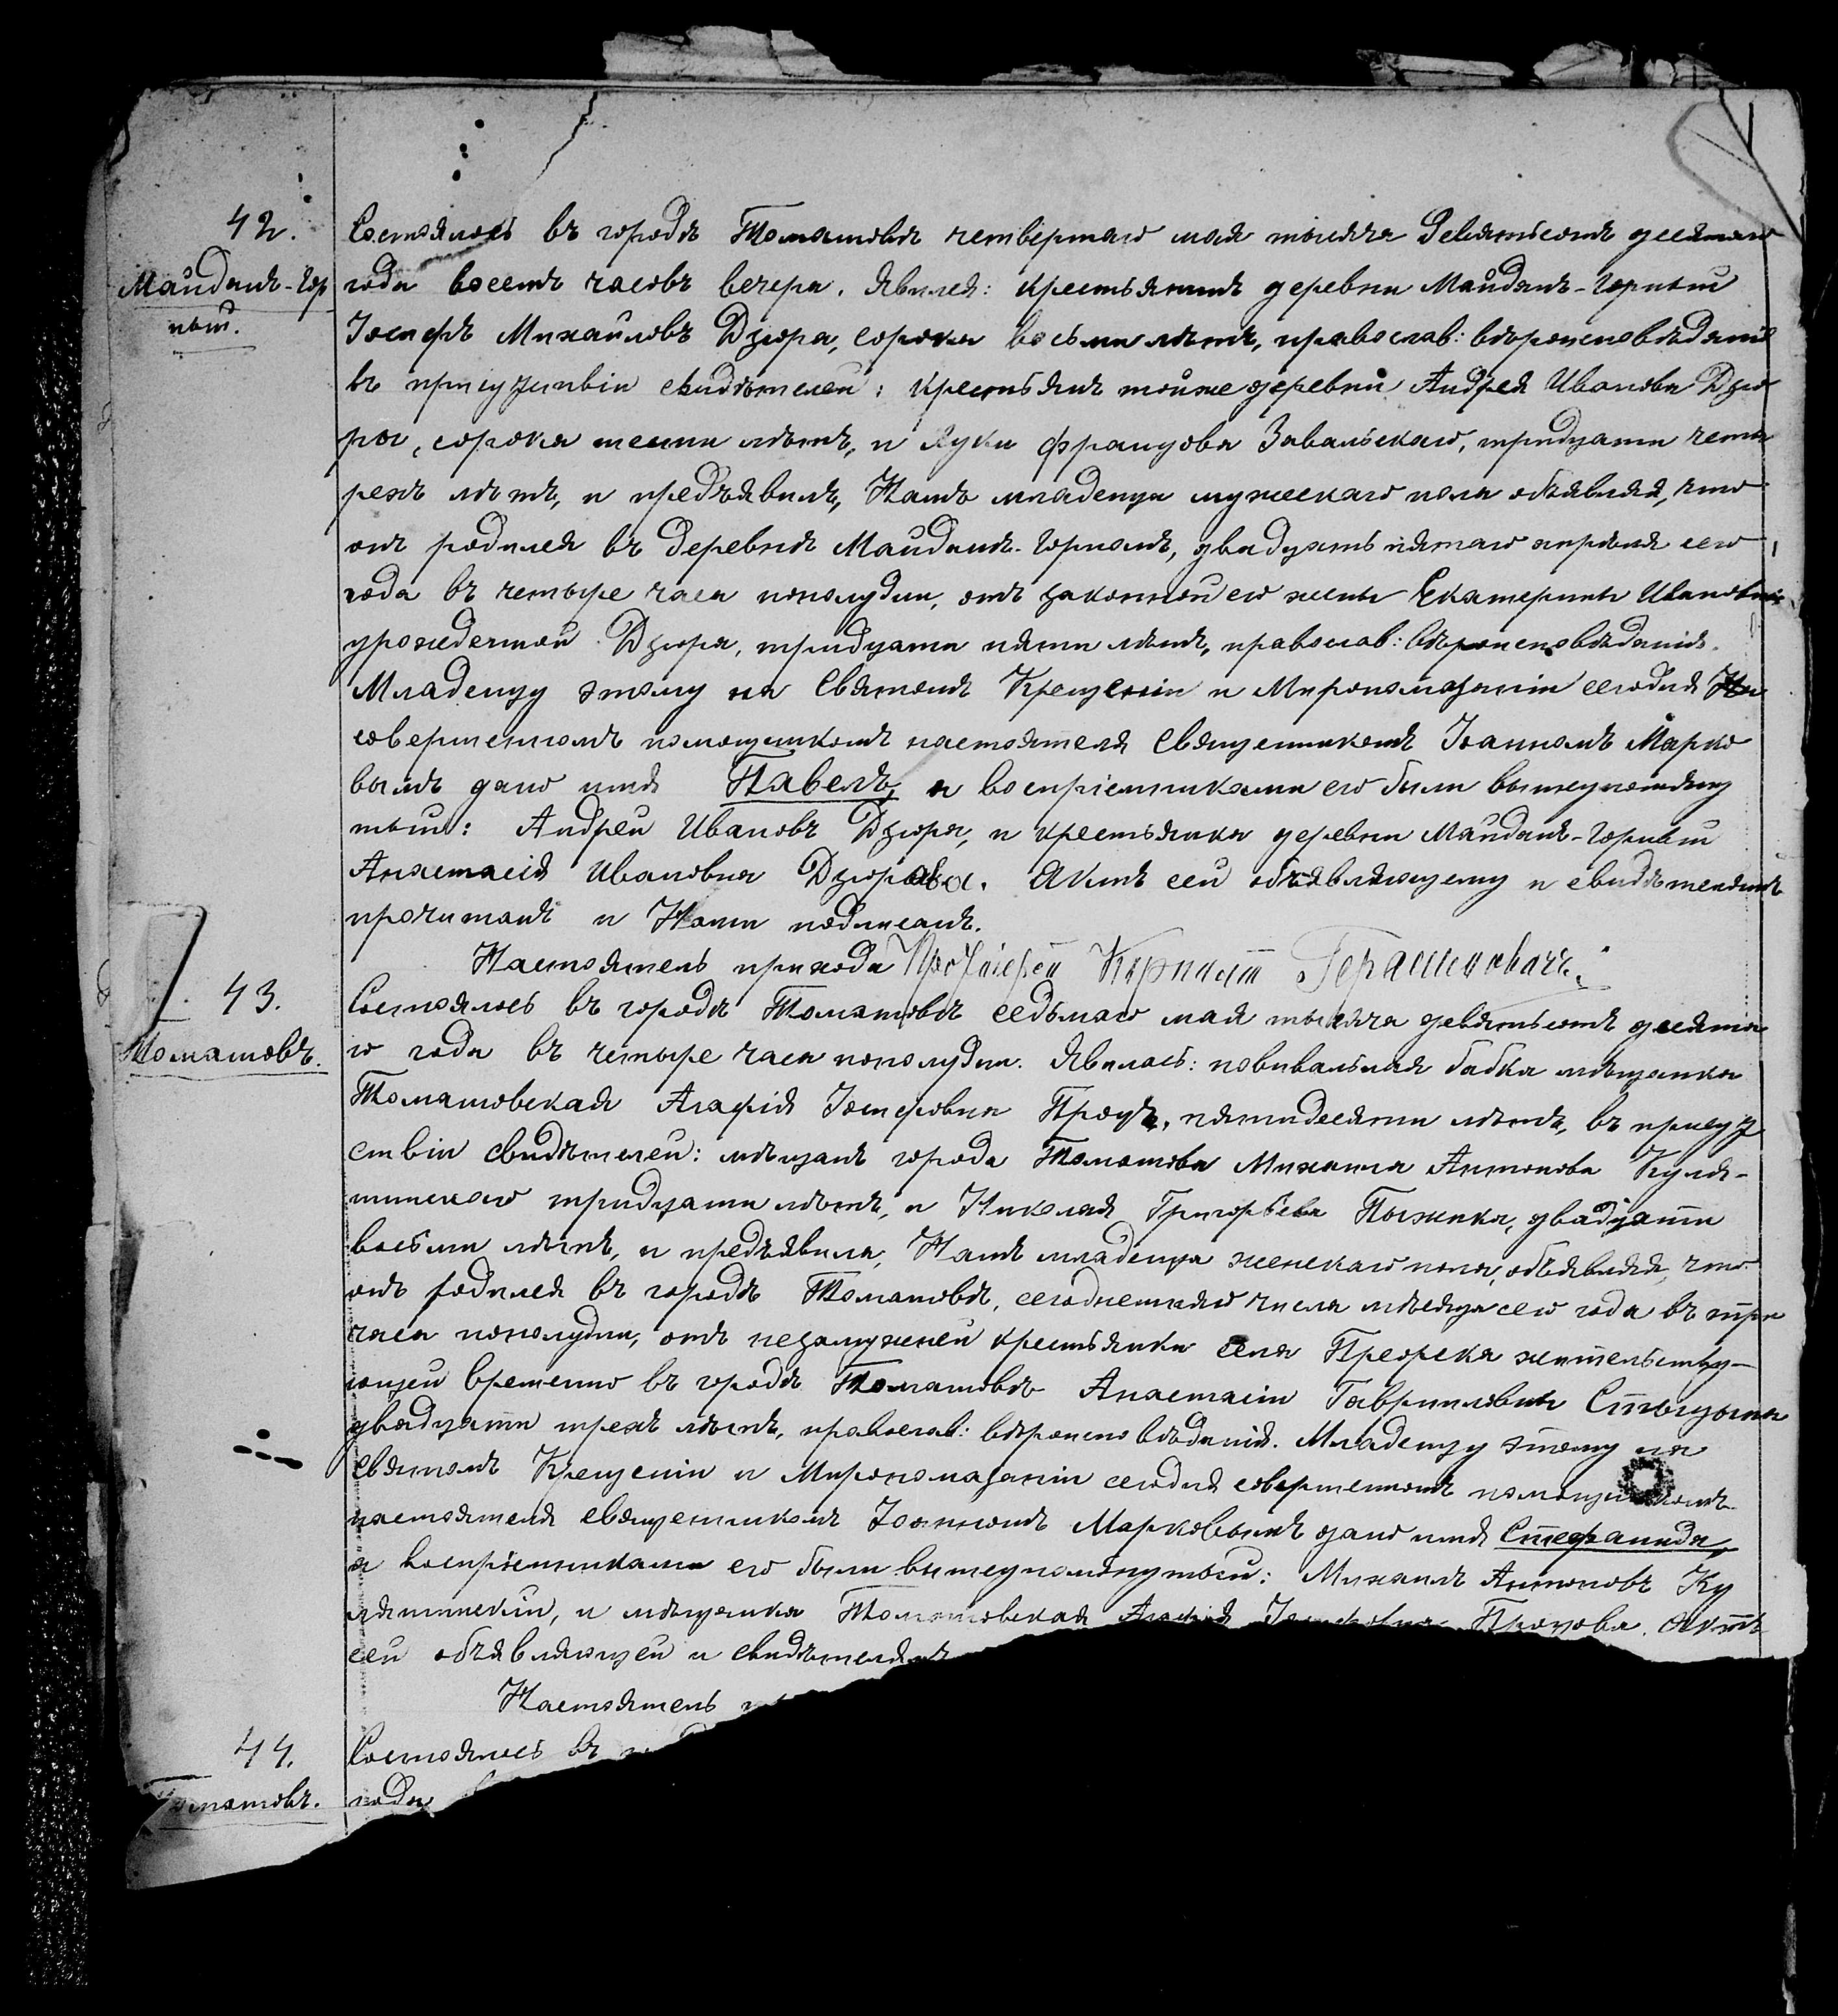 42.
Майданъ-Гор
ный.
Состоялось въ городѣ Томашовѣ четвертаго мая тысяча девятьсотъ десятаго
года восемъ часовъ вечера. Явился: крестьянинъ деревни Майданъ-Горный
Іосифъ Михайловъ Дзюра, сорока восьми лѣтъ, православ: вѣроисповѣданія
въ присутствіи свидѣтелей: крестьянъ тойже деревни Андрея Иванова Дзю
ры, сорока шести лѣтъ, и Луки Францова Завальскаго, тридцати четы
рехъ лѣтъ, и предъявилъ, Намъ младенца мужескаго пола объявляя, что
онъ родился въ деревнѣ Майданъ-Горномъ, двадцать пятаго апрѣля сего
года въ четыре часа пополудни, отъ законной его жены Екатерины Ивановны
урожденной Дзюра, тридцати пяти лѣтъ, православ: вѣроисповѣданія.
Младенцу этому на Святомъ Крещеніи и Миропомазаніи сегодня
совершенномъ помощникомъ настоятеля Священникомъ Іоанномъ Марко
вымъ дано имя Павелъ, а воспріемниками его были вышеупомяну
тый: Андрей Ивановъ Дзюра, и крестьянка деревни Майданъ-Горный
Анастасія Ивановна Дзюрова. Актъ сей объявляющему и свидѣтелямъ
прочитанъ и Нами подписанъ.
Настоятель прихода Протоіерей Кирилл Герасимовичъ.
43.
Томашовъ.
Состоялось въ городѣ Томашовѣ седьмаго мая тысяча девятьсотъ десята
го года въ четыре часа пополудни. Явилась: повивальная бабка мѣщанка
Томашовская Агафія Іосифовна Проць, пятидесяти лѣтъ, въ присут
ствіи свидѣтелей: мѣщанъ города Томашова Михаила Антонова Куля-
шинскаго тридцати лѣтъ, и Николая Григорьева Пыжика, двадцати
восьми лѣтъ, и предъявила, Намъ младенца женскаго пола, объявляя, что
онъ родился въ городѣ Томашовѣ, сегоднешняго числа мѣсяца сего года въ три
часа пополудни, отъ незамужней крестьянки села Преорска жительству-
ющей временно въ городѣ Томашовѣ Анастасіи Гавриловны
двадцати трехъ лѣтъ, православ: вѣроисповѣданія. Младенцу этому на
Святомъ Крещеніи и Миропомазаніи сегодня совершенномъ помощникомъ
настоятеля священникомъ Іоанномъ Марковымъ дано имя Стефанида,
а воспріемниками его были вышеупомянутый: Михаилъ Антоновъ Ку
ляшинскій, и мѣщанка Томашовская Агафія Іосифовна Процова. Актъ
сей объявляющей и свидѣтелямъ
Настоятель
44.
Томашовъ.
Состоялось въ
года